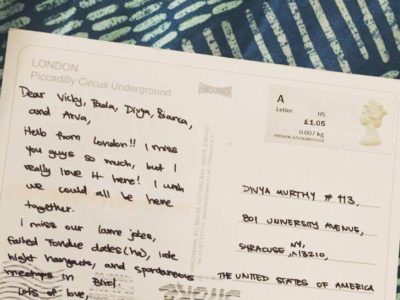 LONDON
Piccadilly Circus Underground
Dear Vicky, Paola, Divya, Bianca,
and Arva,
Hello from London!! I miss
you guys so much, but I
really love it here! I wish
we could all be here
together.
I miss our lame jokes,
failed Fondue dates (ha), late
night hangouts, and spontaneous
meetups in Bird
Lots of love,
A
Letter
£1.05
0.00/kg
DIVYA MURTHY # 113,
801 UNIVERSITY AVENUE,
SYRACUSE, NY,
13210,
THE UNITED STATES OF AMERICA